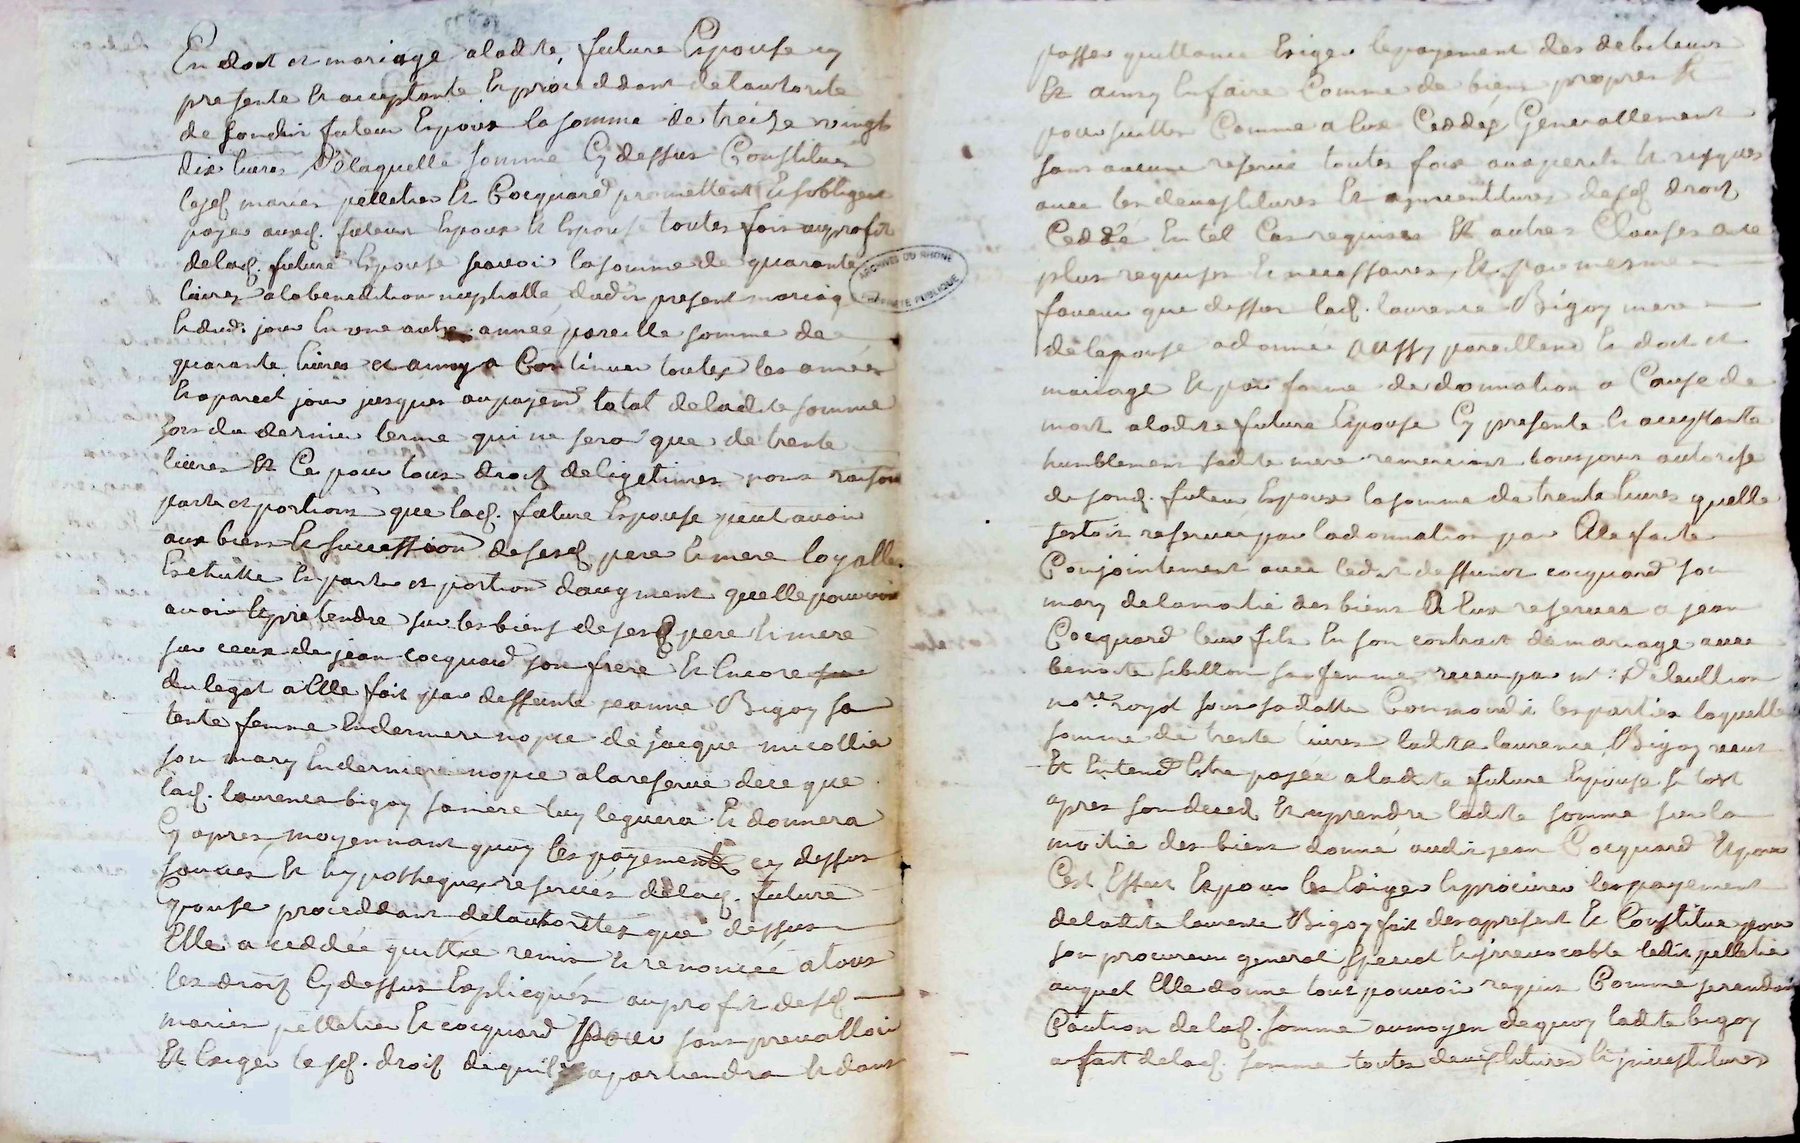 En dot et mariage a ladte. future Espouse cy
presente et acceptante Et proceddant de lautorite
de sondit futeur Espoux la somme de treize vingt
dix livres De laquelle somme Cy dessus Constituée
lesd. maries pelletier Et Cocquard promettent Et sobligent
payer auxd. futeurs Espoux Et Espouse toutes fois au profit
de lad. future Espouse scavoir la somme de quarante
livres a la benediction nuptialle dudit present mariage
dud. jour En une autre année pareille somme de
quarante livres et ainsy a Continuer toutes les années
Et a pareil jour jusques au payemt. total de ladite somme
lors du dernier terme qui ne sera que de trente
livres Et Ce pour tous droits de ligetimes noms raisons
parts et portions que lad. future Espouse peut avoir
aux biens Et succession de sesd. pere Et mere loyalle
Eschutte Et parts et portion daugment quelle pouvoit
avoir Et pretendre sur les biens de sesd. pere Et mere
sur ceux de jean cocquard son frere Et Encore
du legat a Elle fait par deffunte jeanne Bigoy sa
tente femme En derniere nopce de jacque micollier
son mary En derniere nopce a la reserve de ce que
lad. laurence bigoy sa mere luy leguera Et donnera
Cy apres, moyennant quoy les payements cy dessus
Et hypotheques reservés de lad. future
Espouse proceddant de lautorités que dessus
Elle a ceddée quitte remis Et renoncée a tous
les droits Cy dessus Explicqués au profit desd.
maries pelletier Et cocquard pour sans prevalloir
Et Exiger lesd. droits de quils apartiendra Et dans
passer quittance Exiger le payement des debiteurs
Et ainsy En faire Comme de biens propres Et
poursuittes Comme a lux Ceddés Generallement
sans aucune reserve toutes fois aux perils Et risques
avec les devestitures Et investitures desd. droits
Ceddé En tel Cas requises Et autres Clauses a ce
plus requises Et necessaires, Et par mesme
faveur que dessus lad. laurence Bigoy mere
de lepouse a donnée aussy pareillemt En dot et
mariage Et par forme de donnation a Cause de
mort a ladte future Espouse Cy presente Et acceptante
humblement sadte mere remerciant tousjours autorisée
de sond. futeur Espoux la somme de trente livres quelle
sestoit reservée par la donnation par Elle faite
Conjointement avec ledit deffunt cocquard son
mary de la moitié des biens a Eux reservés a jean
Cocquard leur fils En son contrat de mariage avec
benoite sibillon sa femme receu par me.
nore. royal sous sa datte Connoit les parties laquelle
somme de trente livres ladte laurence Bigoy veut
Et Entend Estre payée a ladite future Epouse si tost
apres son deced Et a prendre ladte somme sur la
moitié des biens donné audit jean Cocquard Et pour
Cest Effect Et pour les Exiger Et procurer les payement
de ladite laurence Bigoy fait des a present Et Constitue pour
son procureur general special Et jrrevocable ledit pelletier
auquel Elle donne tout pouvoir requis Comme se rendant
Caution de lad. somme au moyen de quoy ladte bigoy
a fait de lad. somme toutes devestitures Et jnvestitures
ARCHIVES DU RHONE
PROPRIETE PUBLIQUE